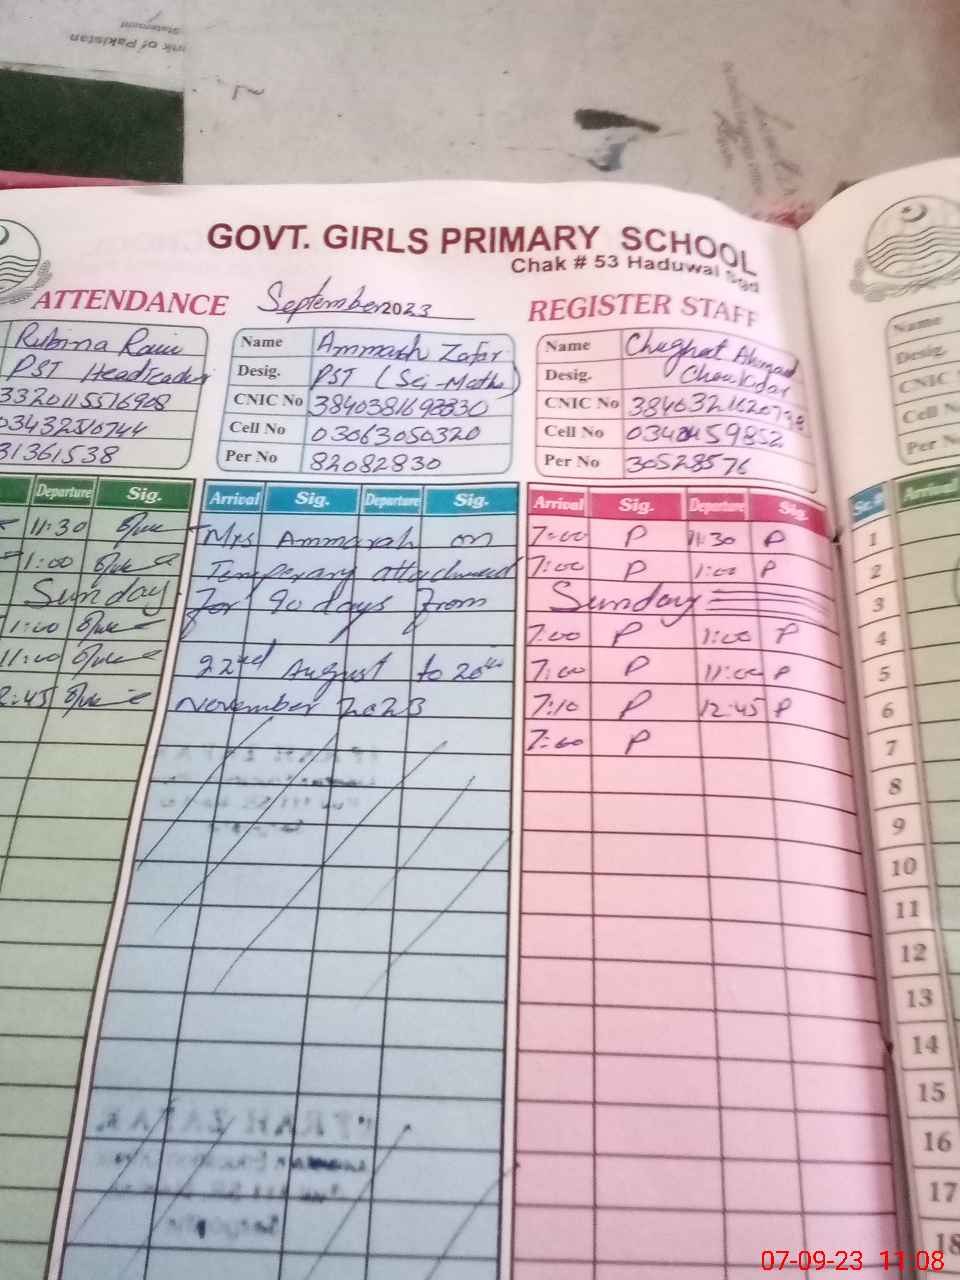 GOVT. GIRLS PRIMARY SCHOOL
Chak # 53 Haduwal Sgd
ATTENDANCE September 2023 REGISTER STAFF
Rubina
PST Headteacher
3320115516908
31361538
Departure Sig.
11:30
1:00
Sunday
1:00
11:00
Name Ammarah Zafar
Desig. PST (Sci-Math)
CNIC No
Cell No 03063050320
Per No 82082830
Arrival Sig. Departure Sig.
Mrs Ammarah on
Temperary attachment
for 90 days from
22nd August to 20th
November 2023
Name
Desig. Choukidar
CNIC No
Cell No
Per No 30528576
Arrival Sig. Departure Sig.
7:00 P 11:30 P
7:00 P 1:00 P
Sunday
7:00 P 1:00 P
7:00 P 11:00 P
7:10 P 12:45 P
7:00 P
Name
Desig.
CNIC
Cell N
Per No
Sr.# Arrival
1
2
3
4
5
6
7
8
9
10
11
12
13
14
15
16
17
18
07-09-23 11:08